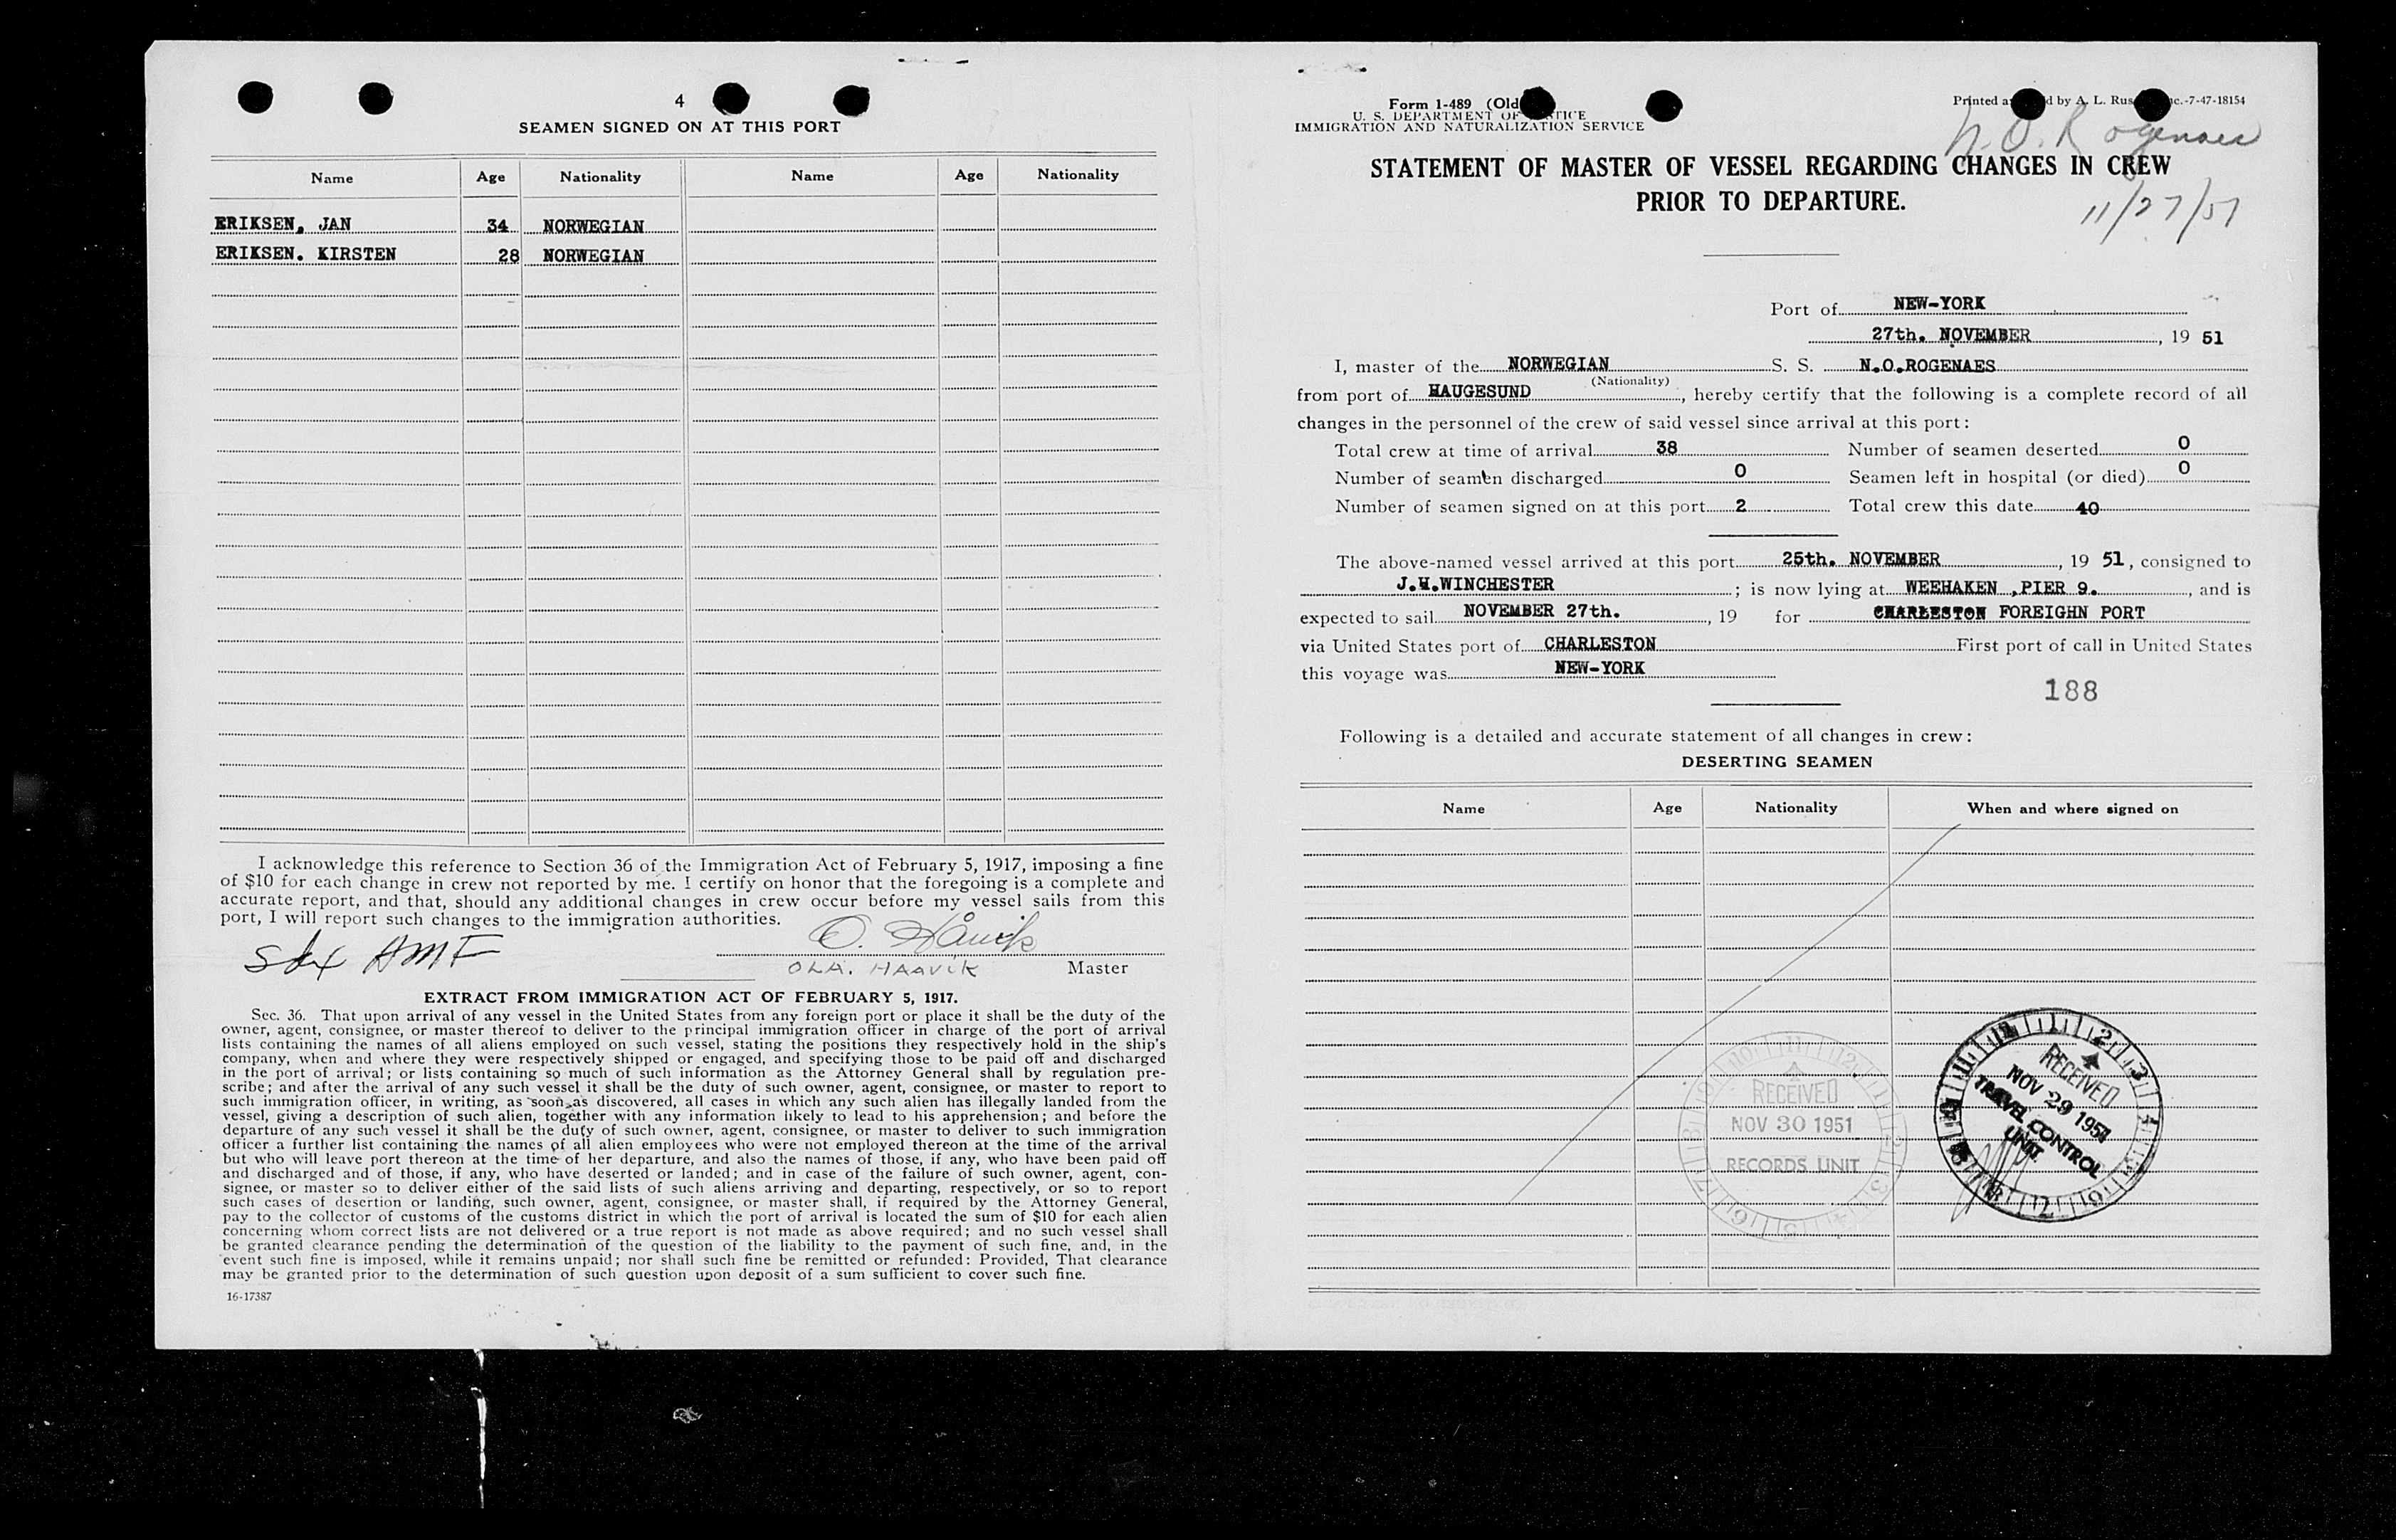 4
SEAMEN SIGNED ON AT THIS PORT
Name Age Nationality Name Age Nationality
ERIKSEN, JAN 34 NORWEGIAN
ERIKSEN. KIRSTEN 28 NORWEGIAN
I acknowledge this reference to Section 36 of the Immigration Act of February 5, 1917, imposing a fine
of $10 for each change in crew not reported by me. I certify on honor that the foregoing is a complete and
accurate report, and that, should any additional changes in crew occur before my vessel sails from this
port, I will report such changes to the immigration authorities.
O. Håvik
OLA. HAAVIK Master
EXTRACT FROM IMMIGRATION ACT OF FEBRUARY 5, 1917.
Sec. 36. That upon arrival of any vessel in the United States from any foreign port or place it shall be the duty of the
owner, agent, consignee, or master thereof to deliver to the principal immigration officer in charge of the port of arrival
lists containing the names of all aliens employed on such vessel, stating the positions they respectively hold in the ship's
company, when and where they were respectively shipped or engaged, and specifying those to be paid off and discharged
in the port of arrival; or lists containing so much of such information as the Attorney General shall by regulation pre-
scribe; and after the arrival of any such vessel it shall be the duty of such owner, agent, consignee, or master to report to
such immigration officer, in writing, as soon as discovered, all cases in which any such alien has illegally landed from the
vessel, giving a description of such alien, together with any information likely to lead to his apprehension; and before the
departure of any such vessel it shall be the duty of such owner, agent, consignee, or master to deliver to such immigration
officer a further list containing the names of all alien employees who were not employed thereon at the time of the arrival
but who will leave port thereon at the time of her departure, and also the names of those, if any, who have been paid off
and discharged and of those, if any, who have deserted or landed; and in case of the failure of such owner, agent, con-
signee, or master so to deliver either of the said lists of such aliens arriving and departing, respectively, or so to report
such cases of desertion or landing, such owner, agent, consignee, or master shall, if required by the Attorney General,
pay to the collector of customs of the customs district in which the port of arrival is located the sum of $10 for each alien
concerning whom correct lists are not delivered or a true report is not made as above required; and no such vessel shall
be granted clearance pending the determination of the question of the liability to the payment of such fine, and, in the
event such fine is imposed, while it remains unpaid; nor shall such fine be remitted or refunded: Provided, That clearance
may be granted prior to the determination of such question upon deposit of a sum sufficient to cover such fine.
16-17387
Form 1-489 (Old
U. S. DEPARTMENT OF JUSTICE
IMMIGRATION AND NATURALIZATION SERVICE
Printed a d by A. L. Rus c.-7-47-18154
N. O. Rogenaes
11/27/51
STATEMENT OF MASTER OF VESSEL REGARDING CHANGES IN CREW
PRIOR TO DEPARTURE.
Port of NEW-YORK
27th. NOVEMBER, 19 51
I, master of the NORWEGIAN S. S. N.O.ROGENAES
(Nationality)
from port of HAUGESUND, hereby certify that the following is a complete record of all
changes in the personnel of the crew of said vessel since arrival at this port:
Total crew at time of arrival 38 Number of seamen deserted 0
Number of seamen discharged 0 Seamen left in hospital (or died) 0
Number of seamen signed on at this port 2 Total crew this date 40
The above-named vessel arrived at this port 25th. NOVEMBER, 19 51, consigned to
J.H.WINCHESTER; is now lying at WEEHAKEN ,PIER 9., and is
expected to sail NOVEMBER 27th., 19 for CHARLESTON FOREIGHN PORT
via United States port of CHARLESTON First port of call in United States
this voyage was NEW-YORK
188
Following is a detailed and accurate statement of all changes in crew:
DESERTING SEAMEN
Name Age Nationality When and where signed on
RECEIVED
NOV 30 1951
RECORDS UNIT
RECEIVED
NOV 29 1951
TRAVEL CONTROL
UNIT